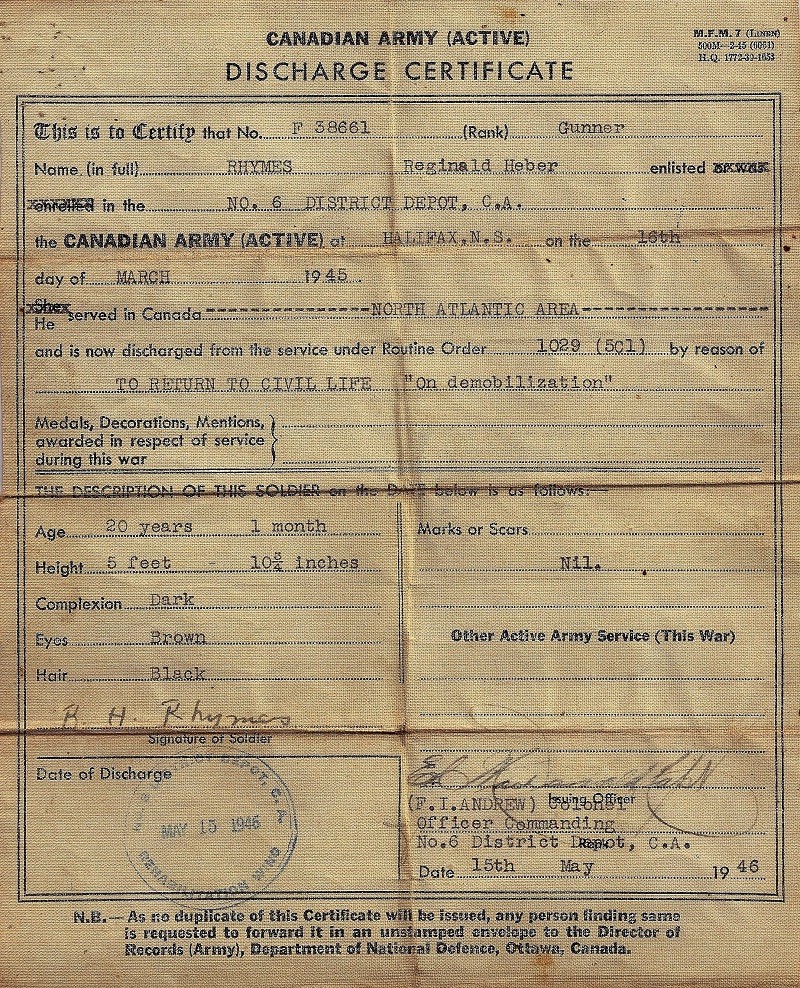 CANADIAN ARMY (ACTIVE)
DISCHARGE CERTIFICATE
M.F.M. 7 (LINEN)
500M—2-45 (6061)
H.Q. 1772-39-1653
This is to Certify that No. F 38661 (Rank) Gunner
Name (in full) RHYMES Reginald Heber enlisted or was
enrolled in the NO. 6 DISTRICT DEPOT, C.A.
the CANADIAN ARMY (ACTIVE) at HALIFAX, N.S. on the 16th
day of MARCH 1945
She
He served in Canada NORTH ATLANTIC AREA
and is now discharged from the service under Routine Order 1029 (5c1) by reason of
TO RETURN TO CIVIL LIFE "On demobilization"
Medals, Decorations, Mentions,
awarded in respect of service
during this war
THE DESCRIPTION OF THIS SOLDIER on the DATE below is as follows:—
Age 20 years 1 month
Height 5 feet - 10¾ inches
Complexion Dark
Eyes Brown
Hair Black
R. H. Rhymes
Signature of Soldier
Marks or Scars
Nil.
Other Active Army Service (This War)
Date of Discharge
DISTRICT DEPOT, C.A.
MAY 15 1946
REHABILITATION WING
Issuing Officer
(F.I.ANDREW) Colonel
Officer Commanding
No.6 District Depot, C.A.
Rank
Date 15th May 1946
N.B.—As no duplicate of this Certificate will be issued, any person finding same
is requested to forward it in an unstamped envelope to the Director of
Records (Army), Department of National Defence, Ottawa, Canada.